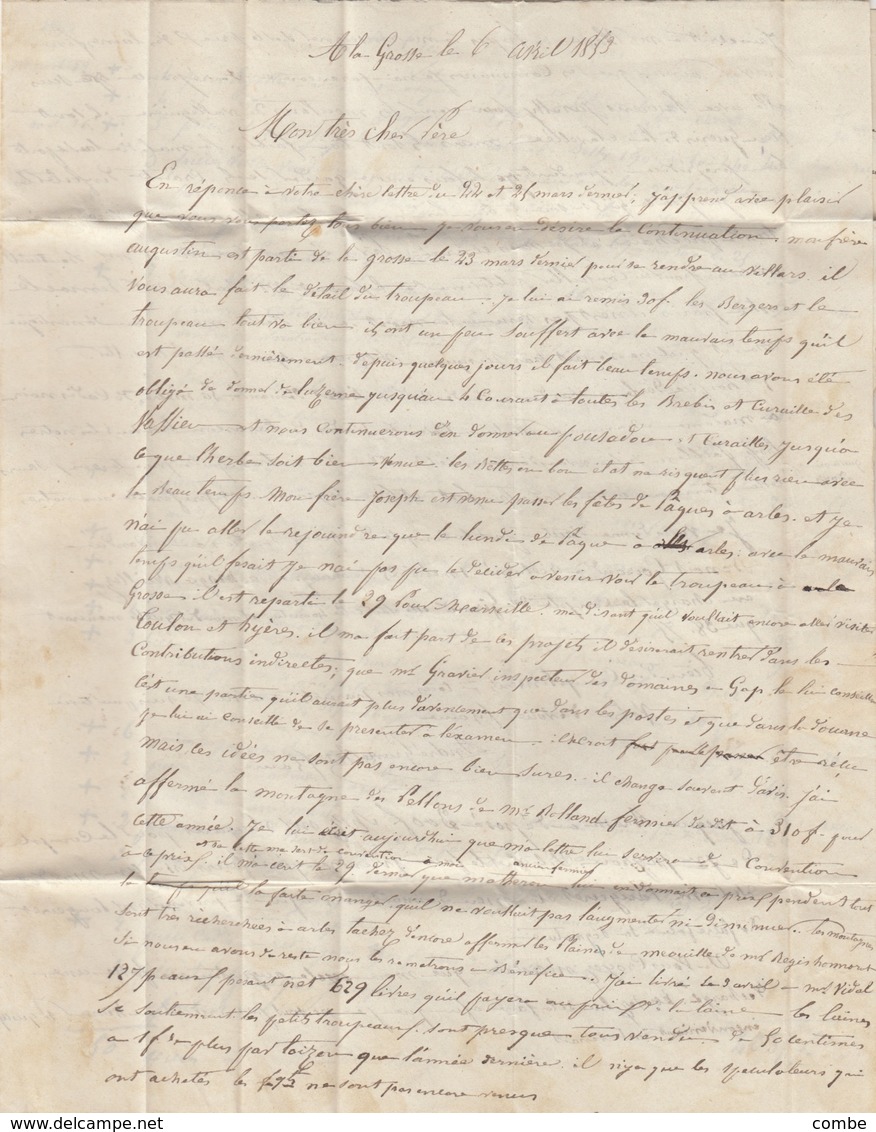 A la Grosse le 6 avril 1853
Mon très cher Père
En réponce à votre chère lettre du 22 et 25 mars dernier, j'apprend avec plaisir
que vous vous portez tous bien je vous en désire la Continuation. mon frère
augustin est partie de la grosse le 23 mars dernier pour se rendre au Villars. il
vous aura fait le détail du troupeau. Je lui ai remis 30f. les Bergers et le
troupeau tout va bien ils ont un peu souffert avec le mauvais temps qu'il
est passé dernièrement. depuis quelques jours il fait beau temps. nous avons été
obligé de donner de luzerne jusqu'au 4 Courant à toutes les Brebis et Curaille des
Vassieu et nous continuerons d'en donner au pousadou et Curailles jusqu'à
ce que l'herbe soit bien venue. les Bêttes en bon état ne risquent plus rien avec
le beau temps. Mon frère Joseph est venu passer les fêtes de Pâques à arles. et je
n'ai pu aller le rejoindre que le lundi de Pâque à arles. avec le mauvais
temps qu'il fesait je n'ai pas pu le décider à venir voir le troupeau à
Grosse. il est repartie le 29 pour Marseille. me disant qu'il voullait encore aller visiter
Toulon et hyères. il ma fait part de ces projets il désirerait rentrer dans les
Contributions indirectes; que mr Gravier inspecteur des domaines à Gap, le lui conseille
c'est une partie qu'il aurait plus d'avencement que dans les postes et que dans la douanne
je lui ai conseillé de se présenter à l'examen. il croit être réçu
mais ces idées ne sont pas encore bien sures. il change souvent d'avis. j'ai
affermé la montagne des Pellons de mr Rolland fermier du dit à 310f. pour
cette année. Je lui écrit aujourdhui que ma lettre lui servira de Convention
et sa lettre me sert de convention à moi
à ce prix. il m'a écrit le 29 dernier que
qu'il ne voullait pas l'augmenter ni diminuer. les montagnes
sont très recherchées à arles tachez d'encore affermer les Plaines de mouille de mr Regis honnorat
Si nous en avons de reste nous les remettrons à Bénéfice. J'ai livré le 3 avril à mr Vidal
127 peaux pesant net 629 livres qu'il payera au prix de la laine. les laines
se soutiennent les petits troupeaux sont presque tous vendu de 50 centimes
à 1f de plus par toizon que l'année dernière. il n'y a que les spéculateurs qui
ont achetés les ne sont pas encore venus
combe